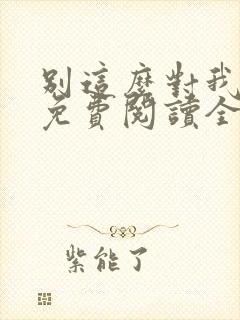 別這麼對我
免費閱讀全
紫能了